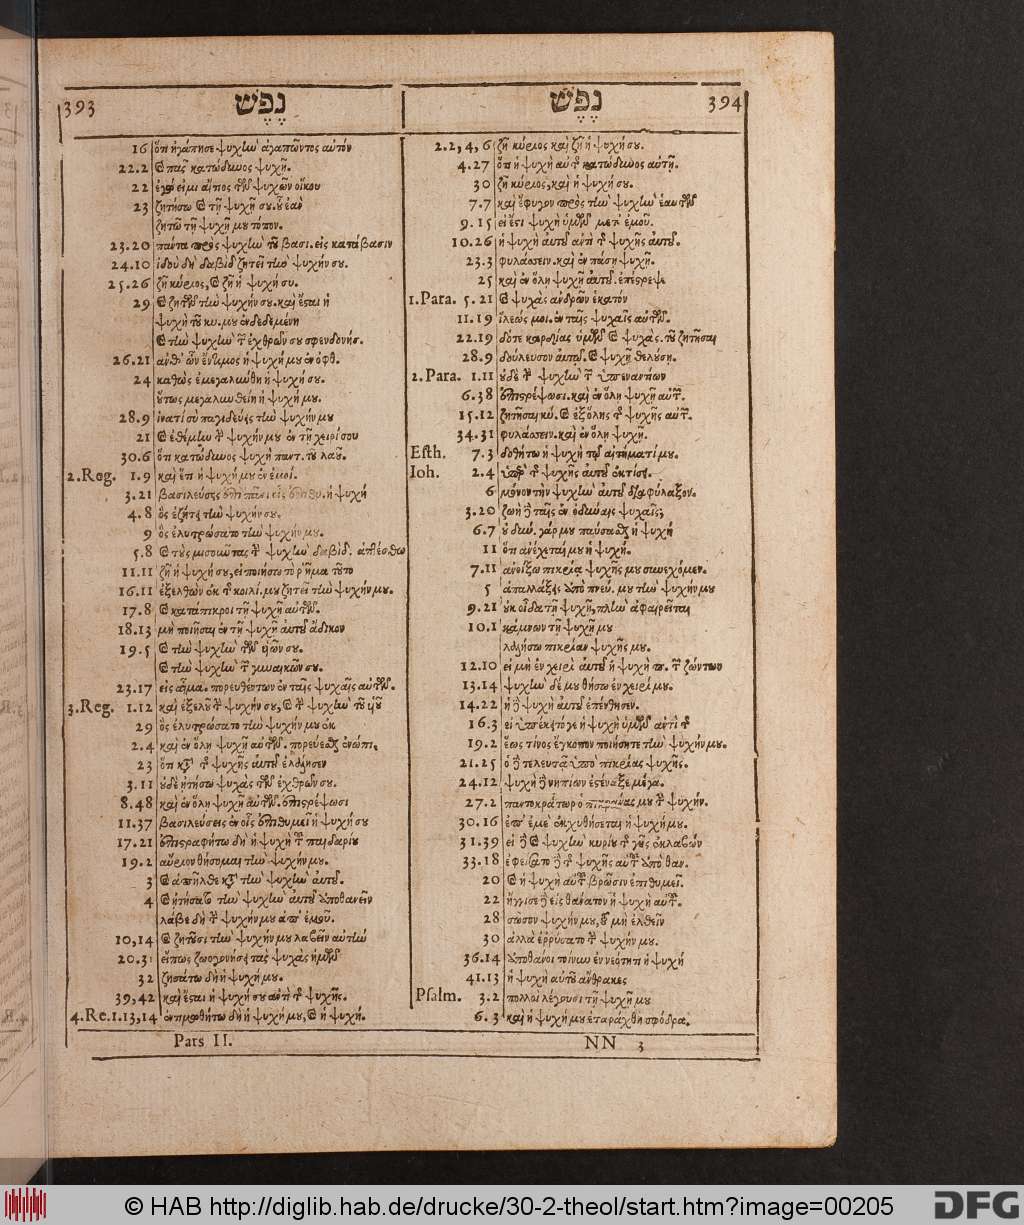 393
נֶפֶשׁ
16 ὅτι ἠγάπησε ψυχὴν ἀγαπῶντος αὐτόν
22.2 καὶ πᾶς κατώδυνος ψυχῇ.
22 ἐγώ εἰμι αἴτιος τῶν ψυχῶν οἴκου
23 ζητήσω καὶ τῇ ψυχῇ σου. οὗ ἐὰν
ζητῶ τῇ ψυχῇ μου τόπον.
23.20 πάντα πρὸς ψυχὴν τοῦ βασι. εἰς κατάβασιν
24.10 ἰδοὺ δὴ δαβὶδ ζητεῖ τὴν ψυχήν σου.
25.26 ζῇ κύριος, καὶ ζῇ ἡ ψυχή συ.
29 καὶ ζητῶν τὴν ψυχήν σου. καὶ ἔσται ἡ
ψυχὴ τοῦ κυ. μου ἐνδεδεμένη
καὶ τὴν ψυχὴν τῶν ἐχθρῶν σου σφενδονήσ.
26.21 ἀνθ᾽ ὧν ἔντιμος ἡ ψυχή μου ἐν ὀφθ.
24 καθὼς ἐμεγαλύνθη ἡ ψυχή σου.
οὕτως μεγαλυνθείη ἡ ψυχή μου.
28.9 ἱνατί σὺ παγιδεύεις τὴν ψυχήν μου
21 καὶ ἐθέμην τὴν ψυχήν μου ἐν τῇ χειρί σου
30.6 ὅτι κατώδυνος ψυχὴ παντ. τοῦ λαοῦ.
2.Reg. 1.9 καὶ ὅτι ἡ ψυχή μου ἐν ἐμοί.
3.21 βασιλεύσεις ἐπὶ πᾶσι εἰς ἐπιθυ. ἡ ψυχή
4.8 ὃς ἐζήτει τὴν ψυχήν σου.
9 ὃς ἐλυτρώσατο τὴν ψυχήν μου.
5.8 καὶ τοὺς μισοῦντας τὴν ψυχὴν δαβίδ.
11.11 ζῇ ἡ ψυχή σου, εἰ ποιήσω τὸ ῥῆμα τοῦτο
16.11 ἐξελθὼν ἐκ τῆς κοιλί. μου ζητεῖ τὴν ψυχήν μου.
17.8 καὶ κατάπικροι τῇ ψυχῇ αὐτῶν.
18.13 μὴ ποιῆσαι ἐν τῇ ψυχῇ αὐτοῦ ἄδικον
19.5 καὶ τὴν ψυχὴν τῶν υἱῶν σου.
καὶ τὴν ψυχὴν τῶν γυναικῶν σου.
23.17 εἰς αἷμα. πορευθέντων ἐν ταῖς ψυχαῖς αὐτῶν.
3.Reg. 1.12 καὶ ἐξελοῦ τὴν ψυχήν σου, καὶ τὴν ψυχὴν τοῦ υἱοῦ
29 ὃς ἐλυτρώσατο τὴν ψυχήν μου ἐκ
2.4 καὶ ἐν ὅλῃ ψυχῇ αὐτῶν. πορεύεσθαι ἐνώπι.
23 ὅτι κατὰ τῆς ψυχῆς αὐτοῦ ἐλάλησεν
3.11 οὐδὲ ᾐτήσω ψυχὰς τῶν ἐχθρῶν σου.
8.48 καὶ ἐν ὅλῃ ψυχῇ αὐτῶν. ἐπιστρέψωσι
11.37 βασιλεύσεις ἐν οἷς ἐπιθυμεῖ ἡ ψυχή σου
17.21 ἐπιστραφήτω δὴ ἡ ψυχὴ τοῦ παιδαρίου
19.2 αὔριον θήσομαι τὴν ψυχήν μου.
3 καὶ ἀπῆλθε κατὰ τὴν ψυχὴν αὐτοῦ.
4 καὶ ᾐτήσατο τὴν ψυχὴν αὐτοῦ ἀποθανεῖν
λάβε δὴ τὴν ψυχήν μου ἀπ᾽ ἐμοῦ.
10,14 καὶ ζητοῦσι τὴν ψυχήν μου λαβεῖν αὐτήν
20.31 εἴπως ζωογονήσει τὰς ψυχὰς ἡμῶν
32 ζησάτω δὴ ἡ ψυχή μου.
39,42 καὶ ἔσται ἡ ψυχή σου ἀντὶ τῆς ψυχῆς.
4.Re.1.13,14 ἐντιμωθήτω δὴ ἡ ψυχή μου, καὶ ἡ ψυχή.
Pars II.
נֶפֶשׁ
394
2.2,4,6 ζῇ κύριος καὶ ζῇ ἡ ψυχή σου.
4.27 ὅτι ἡ ψυχὴ αὐτῆς κατώδυνος αὐτῇ.
30 ζῇ κύριος, καὶ ἡ ψυχή σου.
7.7 καὶ ἔφυγον πρὸς τὴν ψυχὴν ἑαυτῶν
9.15 εἰ ἔστι ψυχὴ ὑμῶν μετ᾽ ἐμοῦ.
10.26 ἡ ψυχὴ αὐτοῦ ἀντὶ τῆς ψυχῆς αὐτοῦ.
23.3 φυλάσσειν. καὶ ἐν πάσῃ ψυχῇ.
25 καὶ ἐν ὅλῃ ψυχῇ αὐτοῦ. ἐπέστρεψε
1.Para. 5.21 καὶ ψυχὰς ἀνδρῶν ἑκατόν
11.19 ἵλεώς μοι. ἐν ταῖς ψυχαῖς αὐτῶν.
22.19 δότε καρδίας ὑμῶν καὶ ψυχὰς. τοῦ ζητῆσαι
28.9 δούλευσον αὐτῷ. καὶ ψυχῇ θελούσῃ.
2.Para. 1.11 οὐδὲ τὴν ψυχὴν τῶν ὑπεναντίων
6.38 ἐπιστρέψωσι. καὶ ἐν ὅλῃ ψυχῇ αὐτῶν.
15.12 ζητῆσαι κύ. καὶ ἐξ ὅλης τῆς ψυχῆς αὐτῶν.
34.31 φυλάσσειν. καὶ ἐν ὅλῃ ψυχῇ.
Esth. 7.3 δοθήτω ἡ ψυχὴ τῷ αἰτήματί μου.
Ioh. 2.4 ὑπὲρ τῆς ψυχῆς αὐτοῦ ἐκτίσει.
6 μόνον τὴν ψυχὴν αὐτοῦ διαφύλαξον.
3.20 ζωὴ δὲ ταῖς ἐν ὀδύναις ψυχαῖς;
6.7 οὐ δύν. γάρ μου παύσασθαι ἡ ψυχή
11 ὅτι ἀνέχεταί μου ἡ ψυχή.
7.11 ἀνοίξω πικρίᾳ ψυχῆς μου συνεχόμεν.
5 ἀπαλλάξεις ἀπὸ πνεύ. μου τὴν ψυχήν μου
9.21 οὐκ οἶδα τῇ ψυχῇ, πλὴν ἀφαιρεῖται
10.1 κάμνων τῇ ψυχῇ μου
λαλήσω πικρίαν ψυχῆς μου.
12.10 εἰ μὴ ἐν χειρὶ αὐτοῦ ἡ ψυχὴ π. τῶν ζώντων
13.14 ψυχὴν δέ μου θήσω ἐν χειρί μου.
14.22 ἡ δὲ ψυχὴ αὐτοῦ ἐπένθησεν.
16.3 εἰ ὑπέκειτό γε ἡ ψυχὴ ὑμῶν ἀντὶ τῆς
19.2 ἕως τίνος ἔγκοπον ποιήσητε τὴν ψυχήν μου.
21.25 ὁ δὲ τελευτᾷ ὑπὸ πικρίας ψυχῆς.
24.12 ψυχὴ δὲ νηπίων ἐστέναξε μέγα.
27.2 παντοκράτωρ ὁ πικράνας μου τὴν ψυχήν.
30.16 ἐπ᾽ ἐμὲ ἐκχυθήσεται ἡ ψυχή μου.
31.39 εἰ δὲ καὶ ψυχὴν κυρίου τῆς γῆς ἐκλαβών
33.18 ἐφείσατο δὲ τῆς ψυχῆς αὐτοῦ ἀπὸ θαν.
20 καὶ ἡ ψυχὴ αὐτοῦ βρῶσιν ἐπιθυμεῖ.
22 ἤγγισε δὲ εἰς θάνατον ἡ ψυχὴ αὐτοῦ.
28 σῶσον ψυχήν μου, τοῦ μὴ ἐλθεῖν
30 ἀλλὰ ἐρρύσατο τὴν ψυχήν μου.
36.14 ἀποθάνοι τοίνυν ἐν νεότητι ἡ ψυχή
41.13 ἡ ψυχὴ αὐτοῦ ἄνθρακες
Psalm. 3.2 πολλοὶ λέγουσι τῇ ψυχῇ μου
6.3 καὶ ἡ ψυχή μου ἐταράχθη σφόδρα.
NN 3
© HAB http://diglib.hab.de/drucke/30-2-theol/start.htm?image=00205
DFG